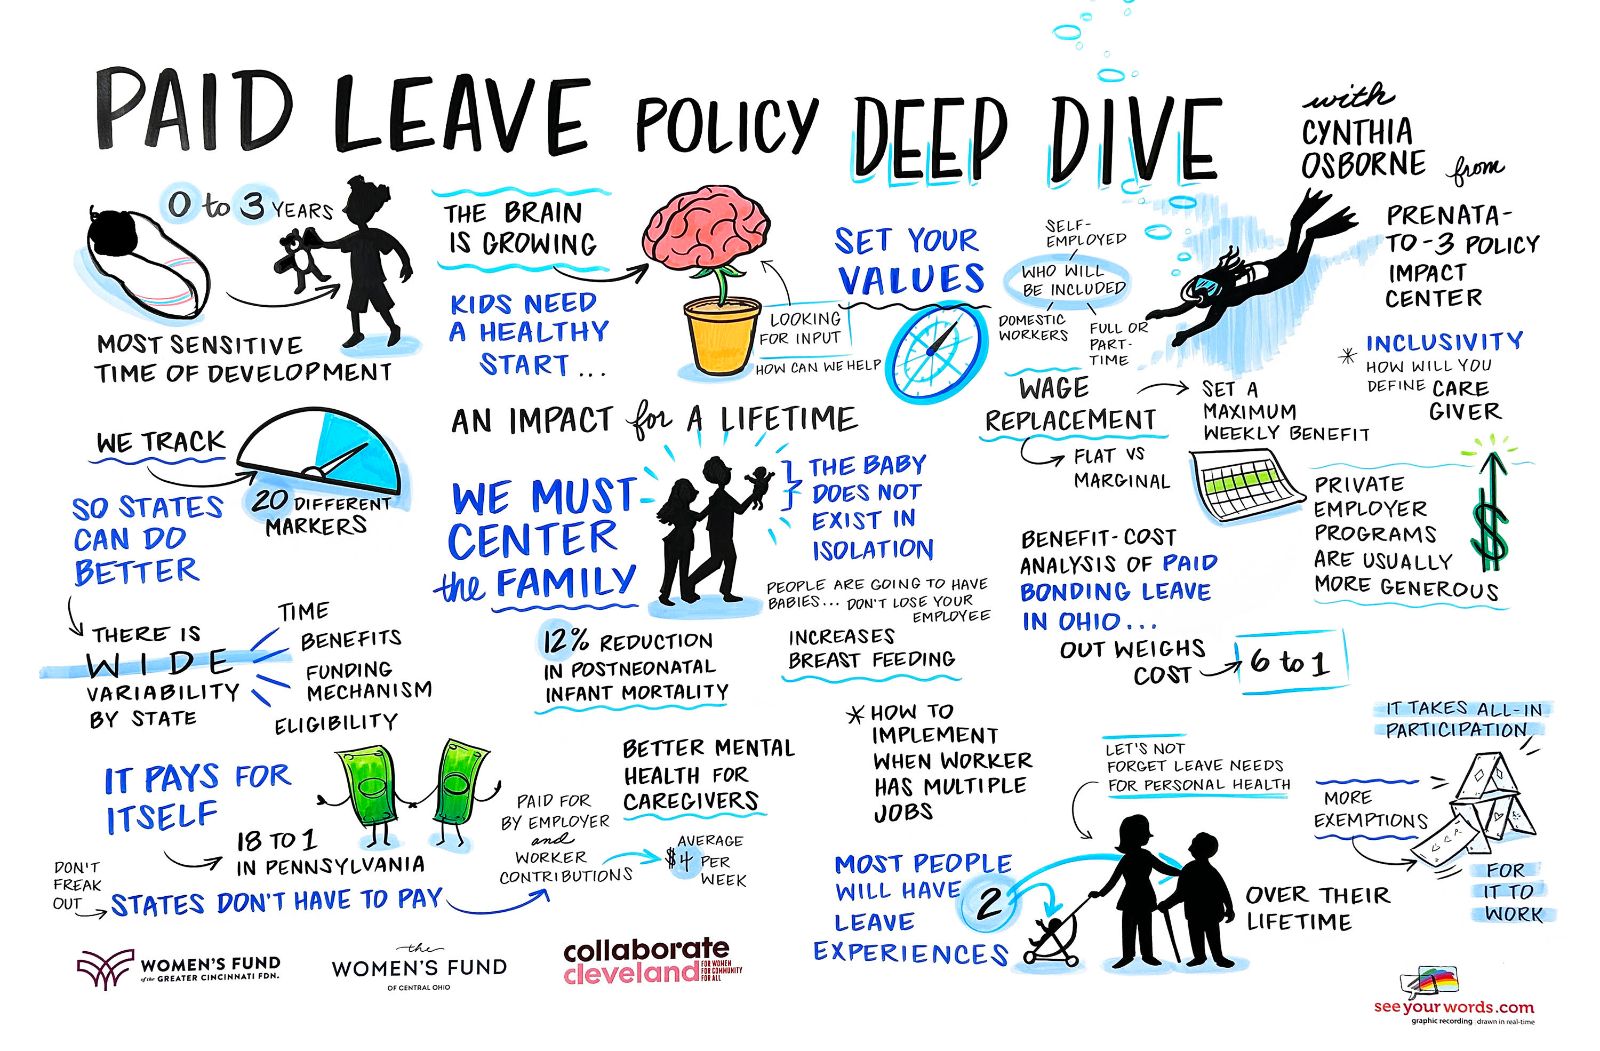 PAID LEAVE POLICY DEEP DIVE
with
CYNTHIA
OSBORNE from
PRENATA-
TO-3 POLICY
IMPACT
CENTER
0 to 3 YEARS
MOST SENSITIVE
TIME OF DEVELOPMENT
THE BRAIN
IS GROWING
KIDS NEED
A HEALTHY
START...
LOOKING
FOR INPUT
HOW CAN WE HELP
AN IMPACT for A LIFETIME
SET YOUR
VALUES
SELF-
EMPLOYED
WHO WILL
BE INCLUDED
DOMESTIC
WORKERS
FULL OR
PART-
TIME
* INCLUSIVITY
HOW WILL YOU
DEFINE CARE
GIVER
WAGE
REPLACEMENT
SET A
MAXIMUM
WEEKLY BENEFIT
FLAT VS
MARGINAL
PRIVATE
EMPLOYER
PROGRAMS
ARE USUALLY
MORE GENEROUS
$
WE TRACK
20 DIFFERENT
MARKERS
SO STATES
CAN DO
BETTER
WE MUST
CENTER
the FAMILY
THE BABY
DOES NOT
EXIST IN
ISOLATION
PEOPLE ARE GOING TO HAVE
BABIES... DON'T LOSE YOUR
EMPLOYEE
BENEFIT-COST
ANALYSIS OF PAID
BONDING LEAVE
IN OHIO...
OUT WEIGHS
COST
6 to 1
THERE IS
WIDE
VARIABILITY
BY STATE
TIME
BENEFITS
FUNDING
MECHANISM
ELIGIBILITY
12% REDUCTION
IN POSTNEONATAL
INFANT MORTALITY
INCREASES
BREAST FEEDING
BETTER MENTAL
HEALTH FOR
CAREGIVERS
IT PAYS FOR
ITSELF
18 TO 1
IN PENNSYLVANIA
DON'T
FREAK
OUT
STATES DON'T HAVE TO PAY
PAID FOR
BY EMPLOYER
and
WORKER
CONTRIBUTIONS
AVERAGE
$4 PER
WEEK
* HOW TO
IMPLEMENT
WHEN WORKER
HAS MULTIPLE
JOBS
LET'S NOT
FORGET LEAVE NEEDS
FOR PERSONAL HEALTH
MOST PEOPLE
WILL HAVE
2
LEAVE
EXPERIENCES
OVER THEIR
LIFETIME
IT TAKES ALL-IN
PARTICIPATION
MORE
EXEMPTIONS
FOR
IT TO
WORK
WOMEN'S FUND
of the GREATER CINCINNATI FDN.
the
WOMEN'S FUND
OF CENTRAL OHIO
collaborate
cleveland
FOR WOMEN
FOR COMMUNITY
FOR ALL
seeyourwords.com
graphic recording drawn in real-time